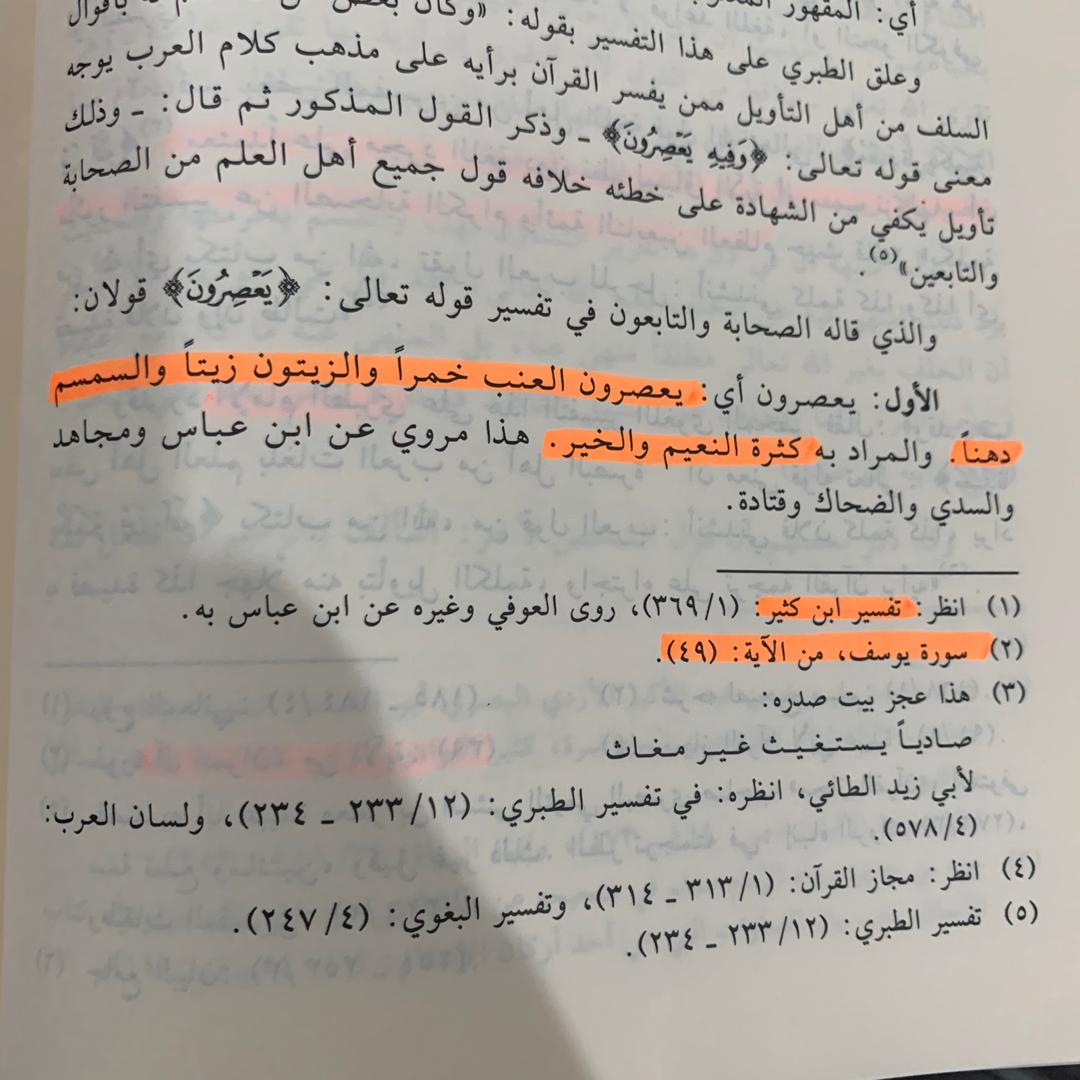 أي: المقهور
وعلق الطبري على هذا التفسير بقوله: «وكان بعض من لا علم له بأقوال
السلف من أهل التأويل ممن يفسر القرآن برأيه على مذهب كلام العرب يوجه
معنى قوله تعالى: ﴿وَفِيهِ يَعْصِرُونَ﴾ ـ وذكر القول المذكور ثم قال: ـ وذلك
تأويل يكفي من الشهادة على خطئه خلافه قول جميع أهل العلم من الصحابة
والتابعين»(٥).
والذي قاله الصحابة والتابعون في تفسير قوله تعالى: ﴿يَعْصِرُونَ﴾ قولان:
الأول: يعصرون أي: يعصرون العنب خمراً والزيتون زيتاً والسمسم
دهناً. والمراد به كثرة النعيم والخير. هذا مروي عن ابن عباس ومجاهد
والسدي والضحاك وقتادة.
(١) انظر: تفسير ابن كثير: (٣٦٩/١)، روى العوفي وغيره عن ابن عباس به.
(٢) سورة يوسف، من الآية: (٤٩).
(٣) هذا عجز بيت صدره:
صادياً يستغيث غير مغاث
لأبي زيد الطائي، انظره: في تفسير الطبري: (٢٣٣/١٢ ـ ٢٣٤)، ولسان العرب:
(٥٧٨/٤).
(٤) انظر: مجاز القرآن: (٣١٣/١ ـ ٣١٤)، وتفسير البغوي: (٢٤٧/٤).
(٥) تفسير الطبري: (٢٣٣/١٢ ـ ٢٣٤).